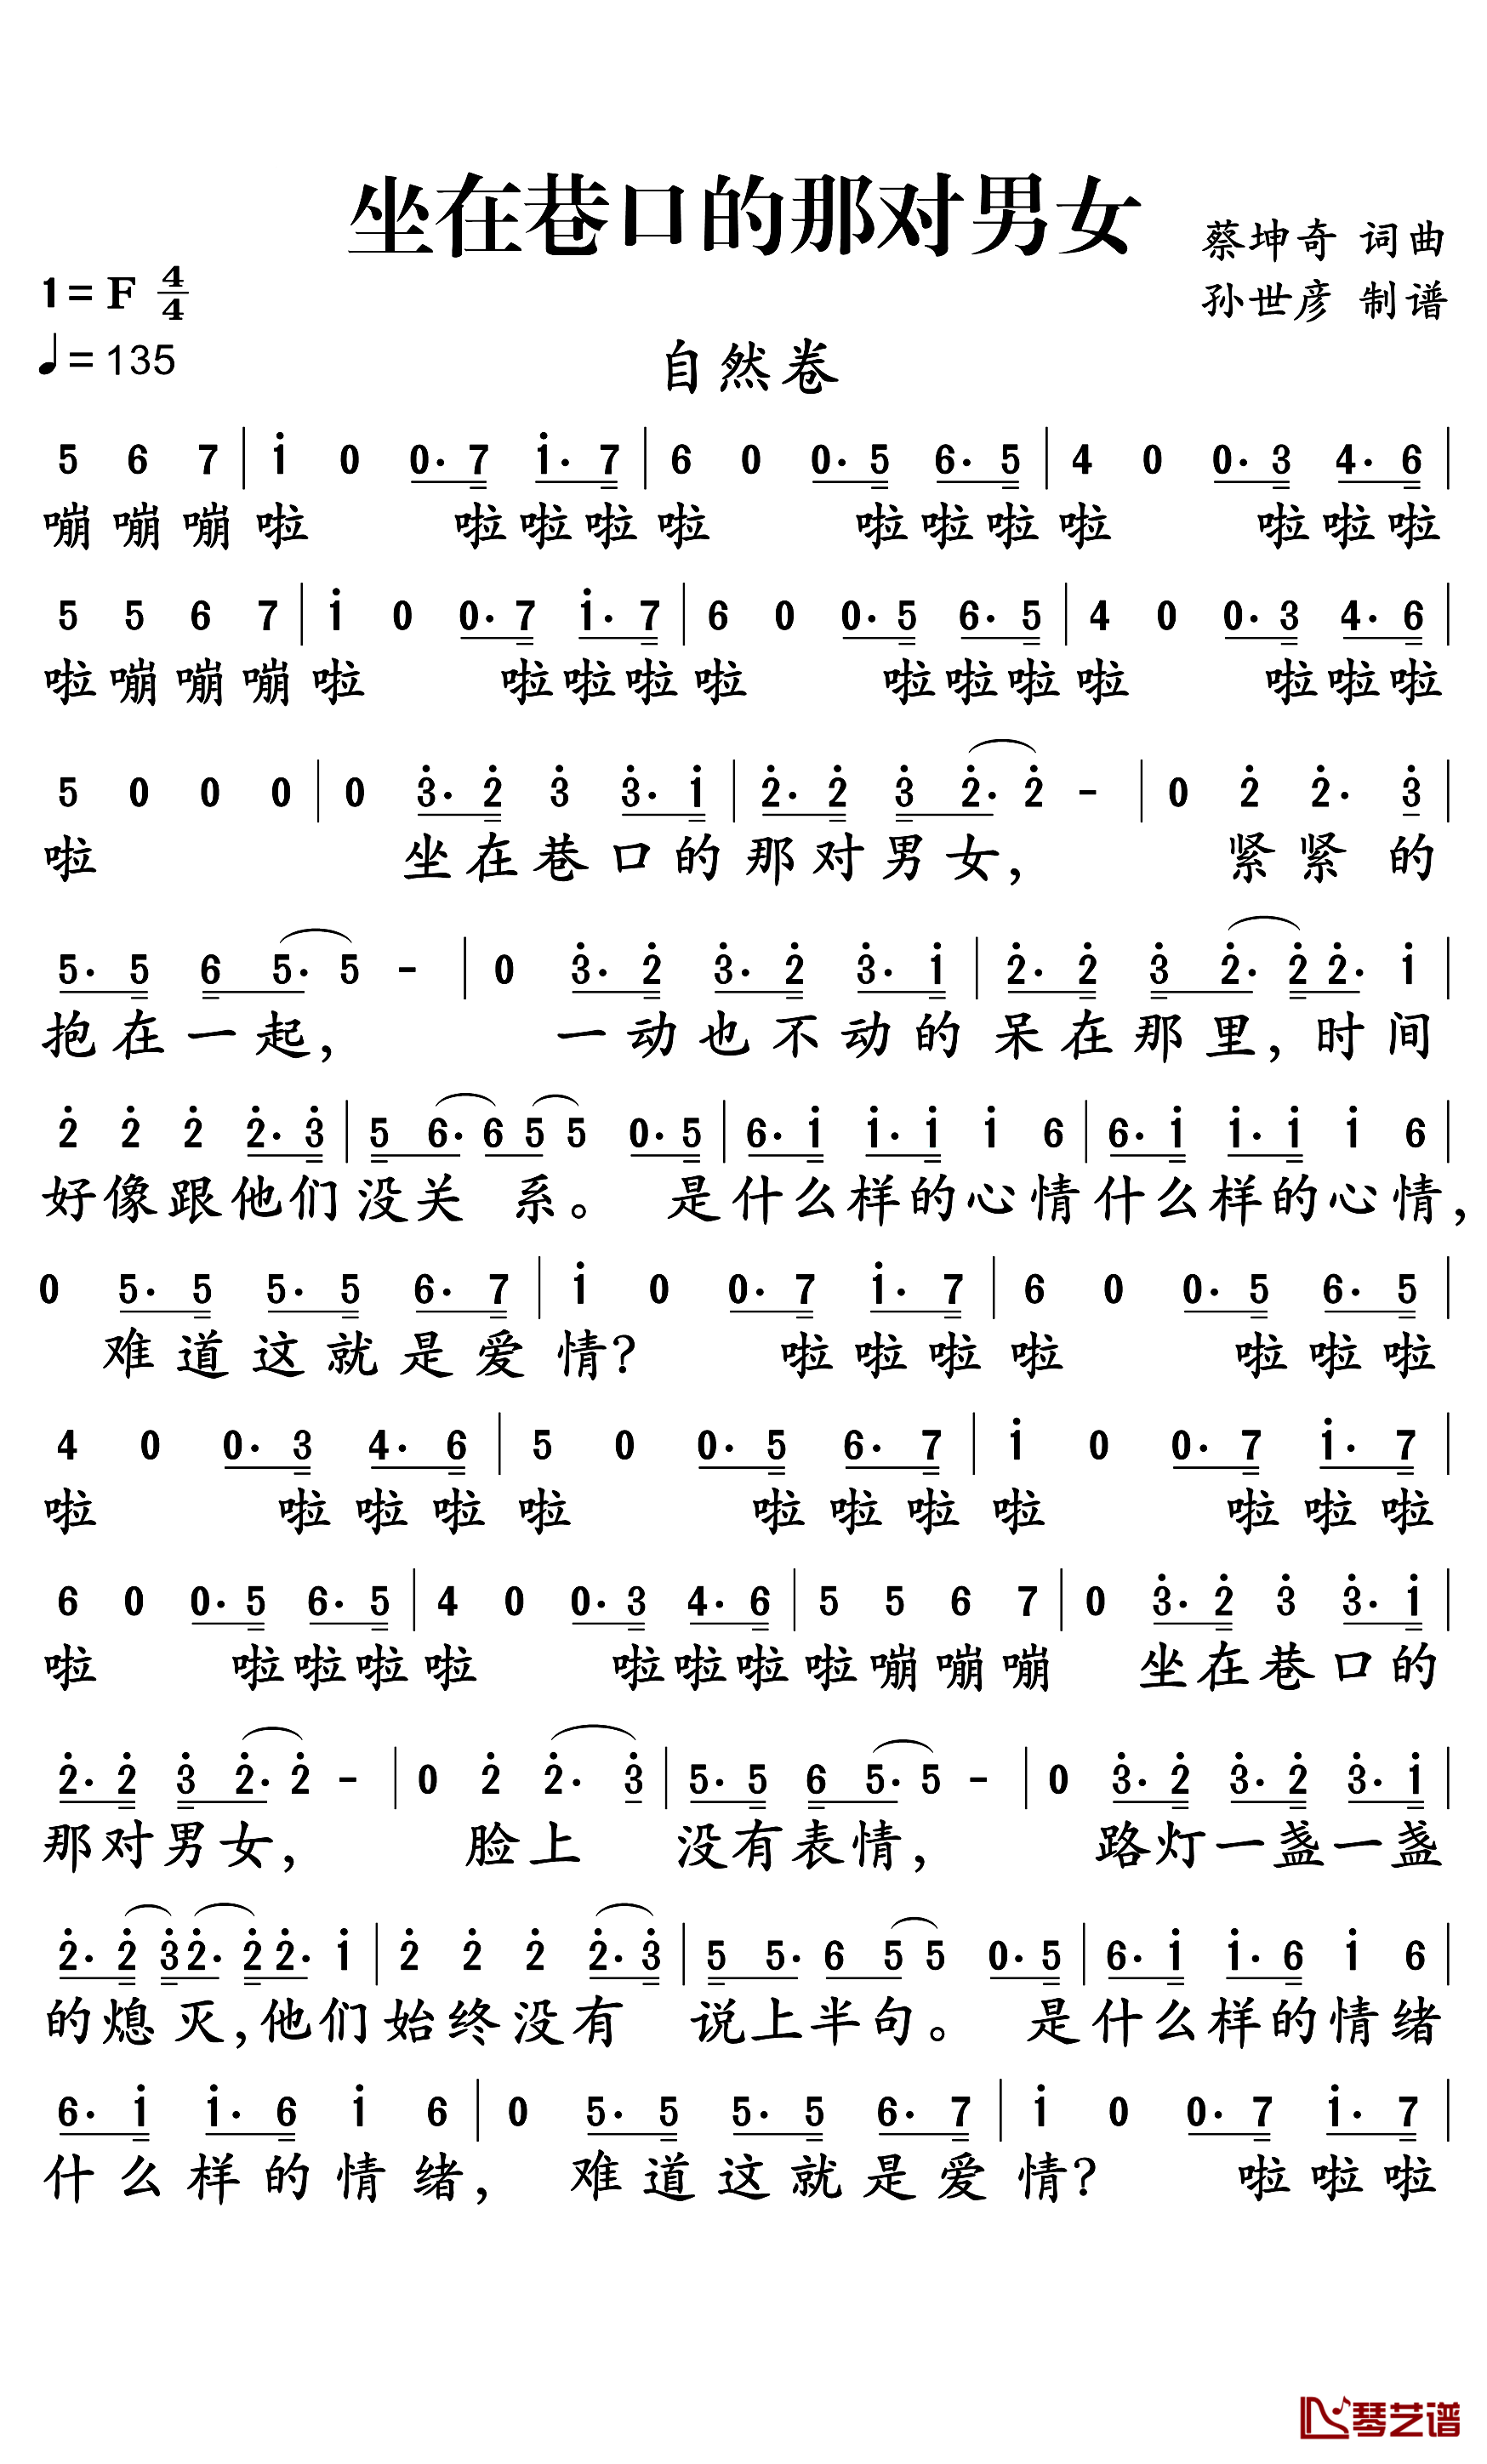 坐在巷口的那对男女
蔡坤奇 词曲
1=F 4/4
孙世彦 制谱
♩=135
自然卷
5 6 7 | i 0 0· 7 i· 7 | 6 0 0· 5 6· 5 | 4 0 0· 3 4· 6 |
嘣嘣嘣啦 啦啦啦啦 啦啦啦啦 啦啦啦
5 5 6 7 | i 0 0· 7 i· 7 | 6 0 0· 5 6· 5 | 4 0 0· 3 4· 6 |
啦嘣嘣嘣啦 啦啦啦啦 啦啦啦啦 啦啦啦
5 0 0 0 | 0 3̇· 2̇ 3̇ 3̇· i | 2̇· 2̇ 3̇ 2̇· 2̇ - | 0 2̇ 2̇· 3̇ |
啦 坐在巷口的那对男女, 紧紧的
5· 5 6 5· 5 - | 0 3̇· 2̇ 3̇· 2̇ 3̇· i | 2̇· 2̇ 3̇ 2̇· 2̇ 2̇· i |
抱在一起, 一动也不动的呆在那里,时间
2̇ 2̇ 2̇ 2̇· 3̇ | 5 6· 6 5 5 0· 5 | 6· i i· i i 6 | 6· i i· i i 6 |
好像跟他们没关 系。 是什么样的心情什么样的心情,
0 5· 5 5· 5 6· 7 | i 0 0· 7 i· 7 | 6 0 0· 5 6· 5 |
难道这就是爱情? 啦啦啦啦 啦啦啦
4 0 0· 3 4· 6 | 5 0 0· 5 6· 7 | i 0 0· 7 i· 7 |
啦 啦啦啦啦 啦啦啦啦 啦啦啦
6 0 0· 5 6· 5 | 4 0 0· 3 4· 6 | 5 5 6 7 | 0 3̇· 2̇ 3̇ 3̇· i |
啦 啦啦啦啦 啦啦啦啦嘣嘣嘣 坐在巷口的
2̇· 2̇ 3̇ 2̇· 2̇ - | 0 2̇ 2̇· 3̇ | 5· 5 6 5· 5 - | 0 3̇· 2̇ 3̇· 2̇ 3̇· i |
那对男女, 脸上 没有表情, 路灯一盏一盏
2̇· 2̇ 3̇ 2̇· 2̇ 2̇· i | 2̇ 2̇ 2̇ 2̇· 3̇ | 5 5· 6 5 5 0· 5 | 6· i i· 6 i 6 |
的熄灭,他们始终没有 说上半句。 是什么样的情绪
6· i i· 6 i 6 | 0 5· 5 5· 5 6· 7 | i 0 0· 7 i· 7 |
什么样的情绪, 难道这就是爱情? 啦啦啦
琴艺谱